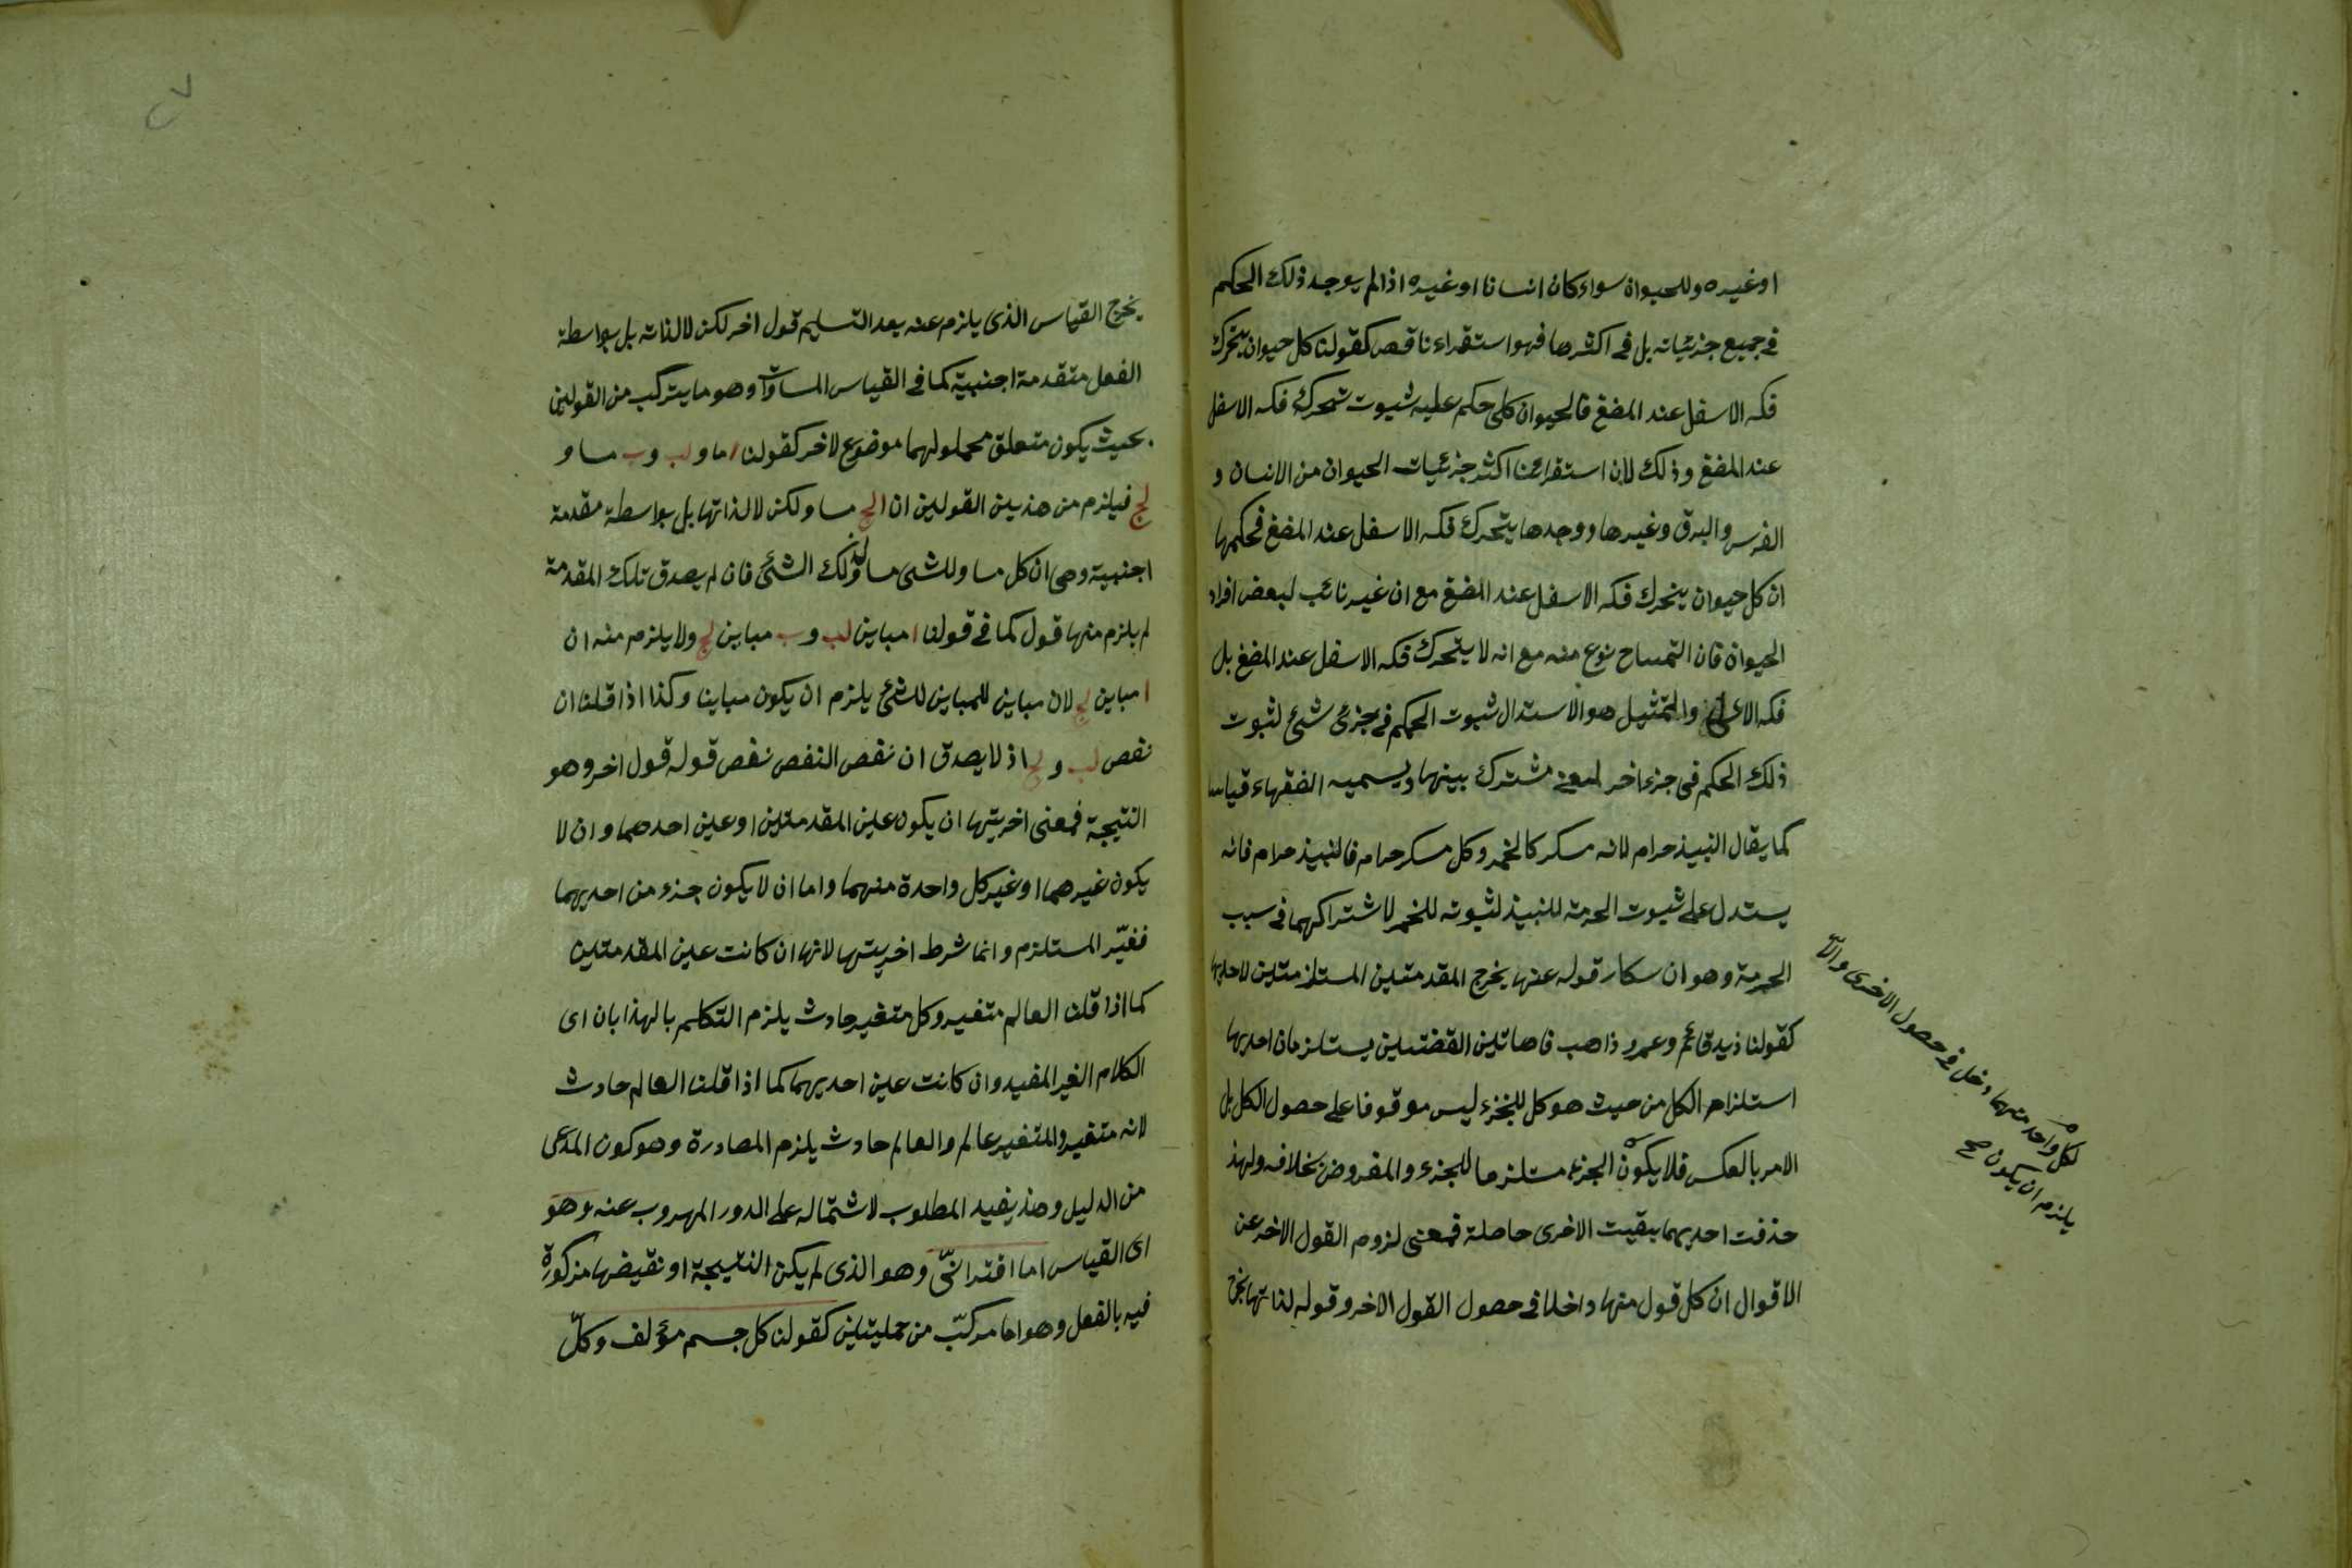 اوغيره وللحيوان سواء كان انسانا او غيره اذا لم يوجد ذلك الحكم
فى جميع جزئياته بل فى اكثرها فهو استقراء ناقص كقولنا كل حيوان يتحرك
فكه الاسفل عند المضغ فالحيوان كلى حكم عليه بثبوت تحرك فكه الاسفل
عند المضغ وذلك لان استقرائنا اكثر جزئيات الحيوان من الانسان و
الفرس والبرق وغيرها ووجدها يتحرك فكه الاسفل عند المضغ فحكمها
ان كل حيوان يتحرك فكه الاسفل عند المضغ مع ان غير نائب لبعض افراد
الحيوان فان التمساح نوع منه مع انه لا يتحرك فكه الاسفل عند المضغ بل
فكه الاعلى والتمثيل هو الاستدال ثبوت الحكم فى جزئى شئ لثبوت
ذلك الحكم فى جزء اخر لمعنى مشترك بينهما ويسميه الفقهاء قياسا
كما يقال النبيذ حرام لانه مسكر كالخمر وكل مسكر حرام فالنبيذ حرام فانه
يستدل على ثبوت الحرمة للنبيذ لثبوته للخمر لاشتراكهما فى سبب
الحرمة وهو ان سكار قوله عنها يخرج المقدمتين المستلزمتين لاحديها
كقولنا زيد قائم وعمرو ذاهب فاهاتين القضتيين يستلزمان احديها
استلزام الكل من حيث هو كل للجزء ليس موقوفا على حصول الكل بل
الامر بالعكس فلا يكون الجزء مستلزما للجزء والمفروض بخلافه ولهذ
حذفت احديهما بقيت الاخرى حاصلة فمعنى لزوم القول الاخر عن
الاقوال ان كل قول منها داخلا فى حصول القول الاخر وقوله لذاتها يخرج
لكل واحد منهما دخل فى حصول الاخرى والا
يلزم ان يكون صح
يخرج القياس الذى يلزم عنه بعد التسليم قول اخر لكن لالذاته بل بواسطة
الفعل متقدمة اجنبية كما فى القياس المساوات وهو ما يتركب من القولين
بحيث يكون متعلق محملولهما موضوع لاخر كقولنا ا ماو لب وب مساو
لج فيلزم من هذين القولين ان ا لج مساو لكن لالذاتها بل بواسطة مقدمة
اجنبية وهى ان كل مساو للشى مساو لذلك الشئ فان لم يصدق تلك المقدمة
لم يلزم منها قول كما فى قولنا ا مباين لب وب مباين لج ولا يلزم منه ان
ا مباين لج لان مباين للمباين للشئ يلزم ان يكون مباينا وكذا اذا قلنا ان
نفص لب و لج اذ لا يصدق ان نفص النفص نفص قوله قول اخر وهو
النتيجة فمعنى اخريتها ان يكون عين المقدمتين او عين احدهما وان لا
يكون غيرهما او غير كل واحدة منهما واما ان لا يكون جزء من احديهما
فغيّر المستلزم وانما شرط اخريتها لانها ان كانت عين المقدمتين
كما اذا قلنا العالم متغير وكل متغير حادث يلزم التكلم بالهذابان اى
الكلام الغير المفيد وان كانت عين احديهما كما اذا قلنا العالم حادث
لانه متغير والمتغير عالم والعالم حادث يلزم المصادرة وهو كون المدعى
من الدليل وهذ يفيد المطلوب لاشتماله على الدور المهروب عنه وهو
اى القياس اما اقترانىّ وهو الذى لم يكن النتيجة او نقيضها مذكورة
فيه بالفعل وهو اما مركّب من حمليتين كقولنا كل جسم مؤلف وكلّ